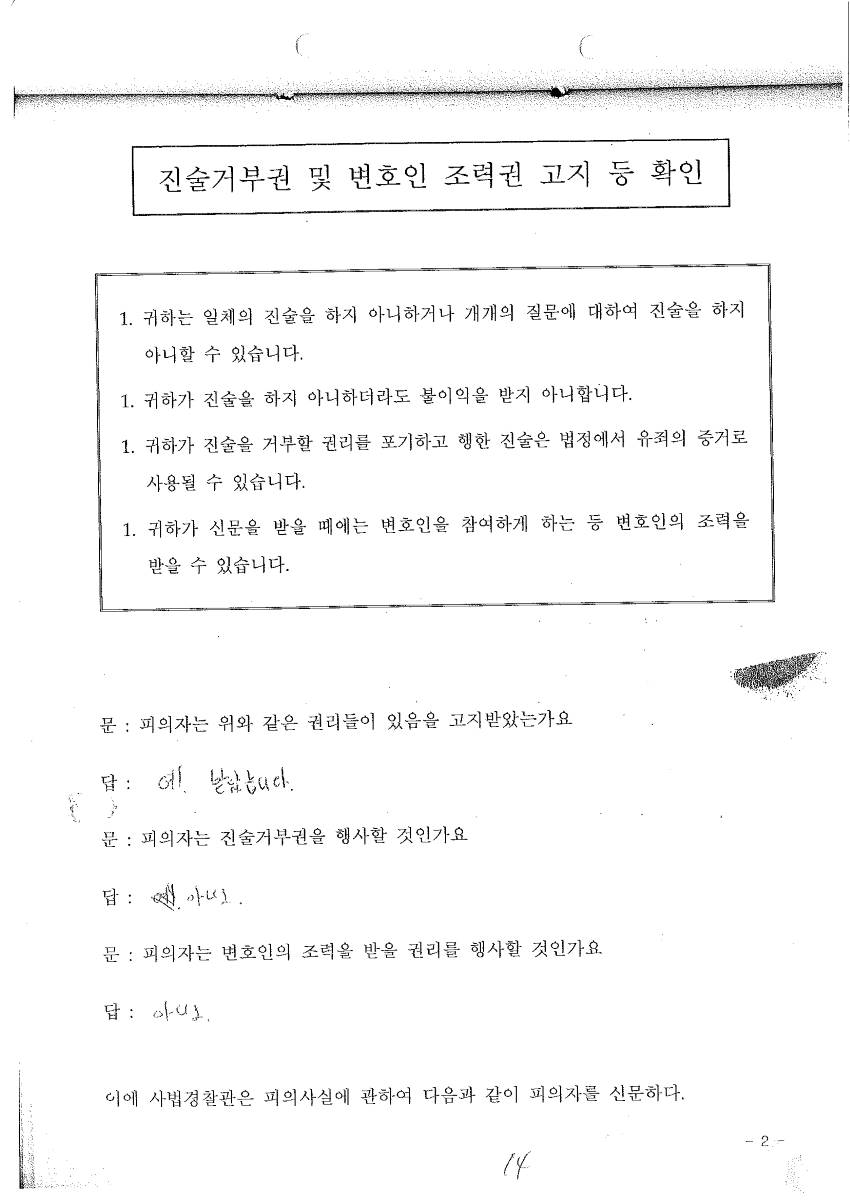 진술거부권 및 변호인 조력권 고지 등 확인
1. 귀하는 일체의 진술을 하지 아니하거나 개개의 질문에 대하여 진술을 하지
아니할 수 있습니다.
1. 귀하가 진술을 하지 아니하더라도 불이익을 받지 아니합니다.
1. 귀하가 진술을 거부할 권리를 포기하고 행한 진술은 법정에서 유죄의 증거로
사용될 수 있습니다.
1. 귀하가 신문을 받을 때에는 변호인을 참여하게 하는 등 변호인의 조력을
받을 수 있습니다.
문 : 피의자는 위와 같은 권리들이 있음을 고지받았는가요
답 : 예. 받았습니다.
문 : 피의자는 진술거부권을 행사할 것인가요
답 : 아니요.
문 : 피의자는 변호인의 조력을 받을 권리를 행사할 것인가요
답 : 아니요.
이에 사법경찰관은 피의사실에 관하여 다음과 같이 피의자를 신문하다.
- 2 -
14